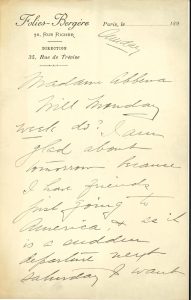 Folies-Bergère
32, Rue Richer
DIRECTION
32, Rue de Trévise
Paris, le 189
Madame Abbema
Will Monday
week do? I am
glad about
tomorrow because
I have friends
just going to
America, & as it
is a sudden
departure next
Saturday I want